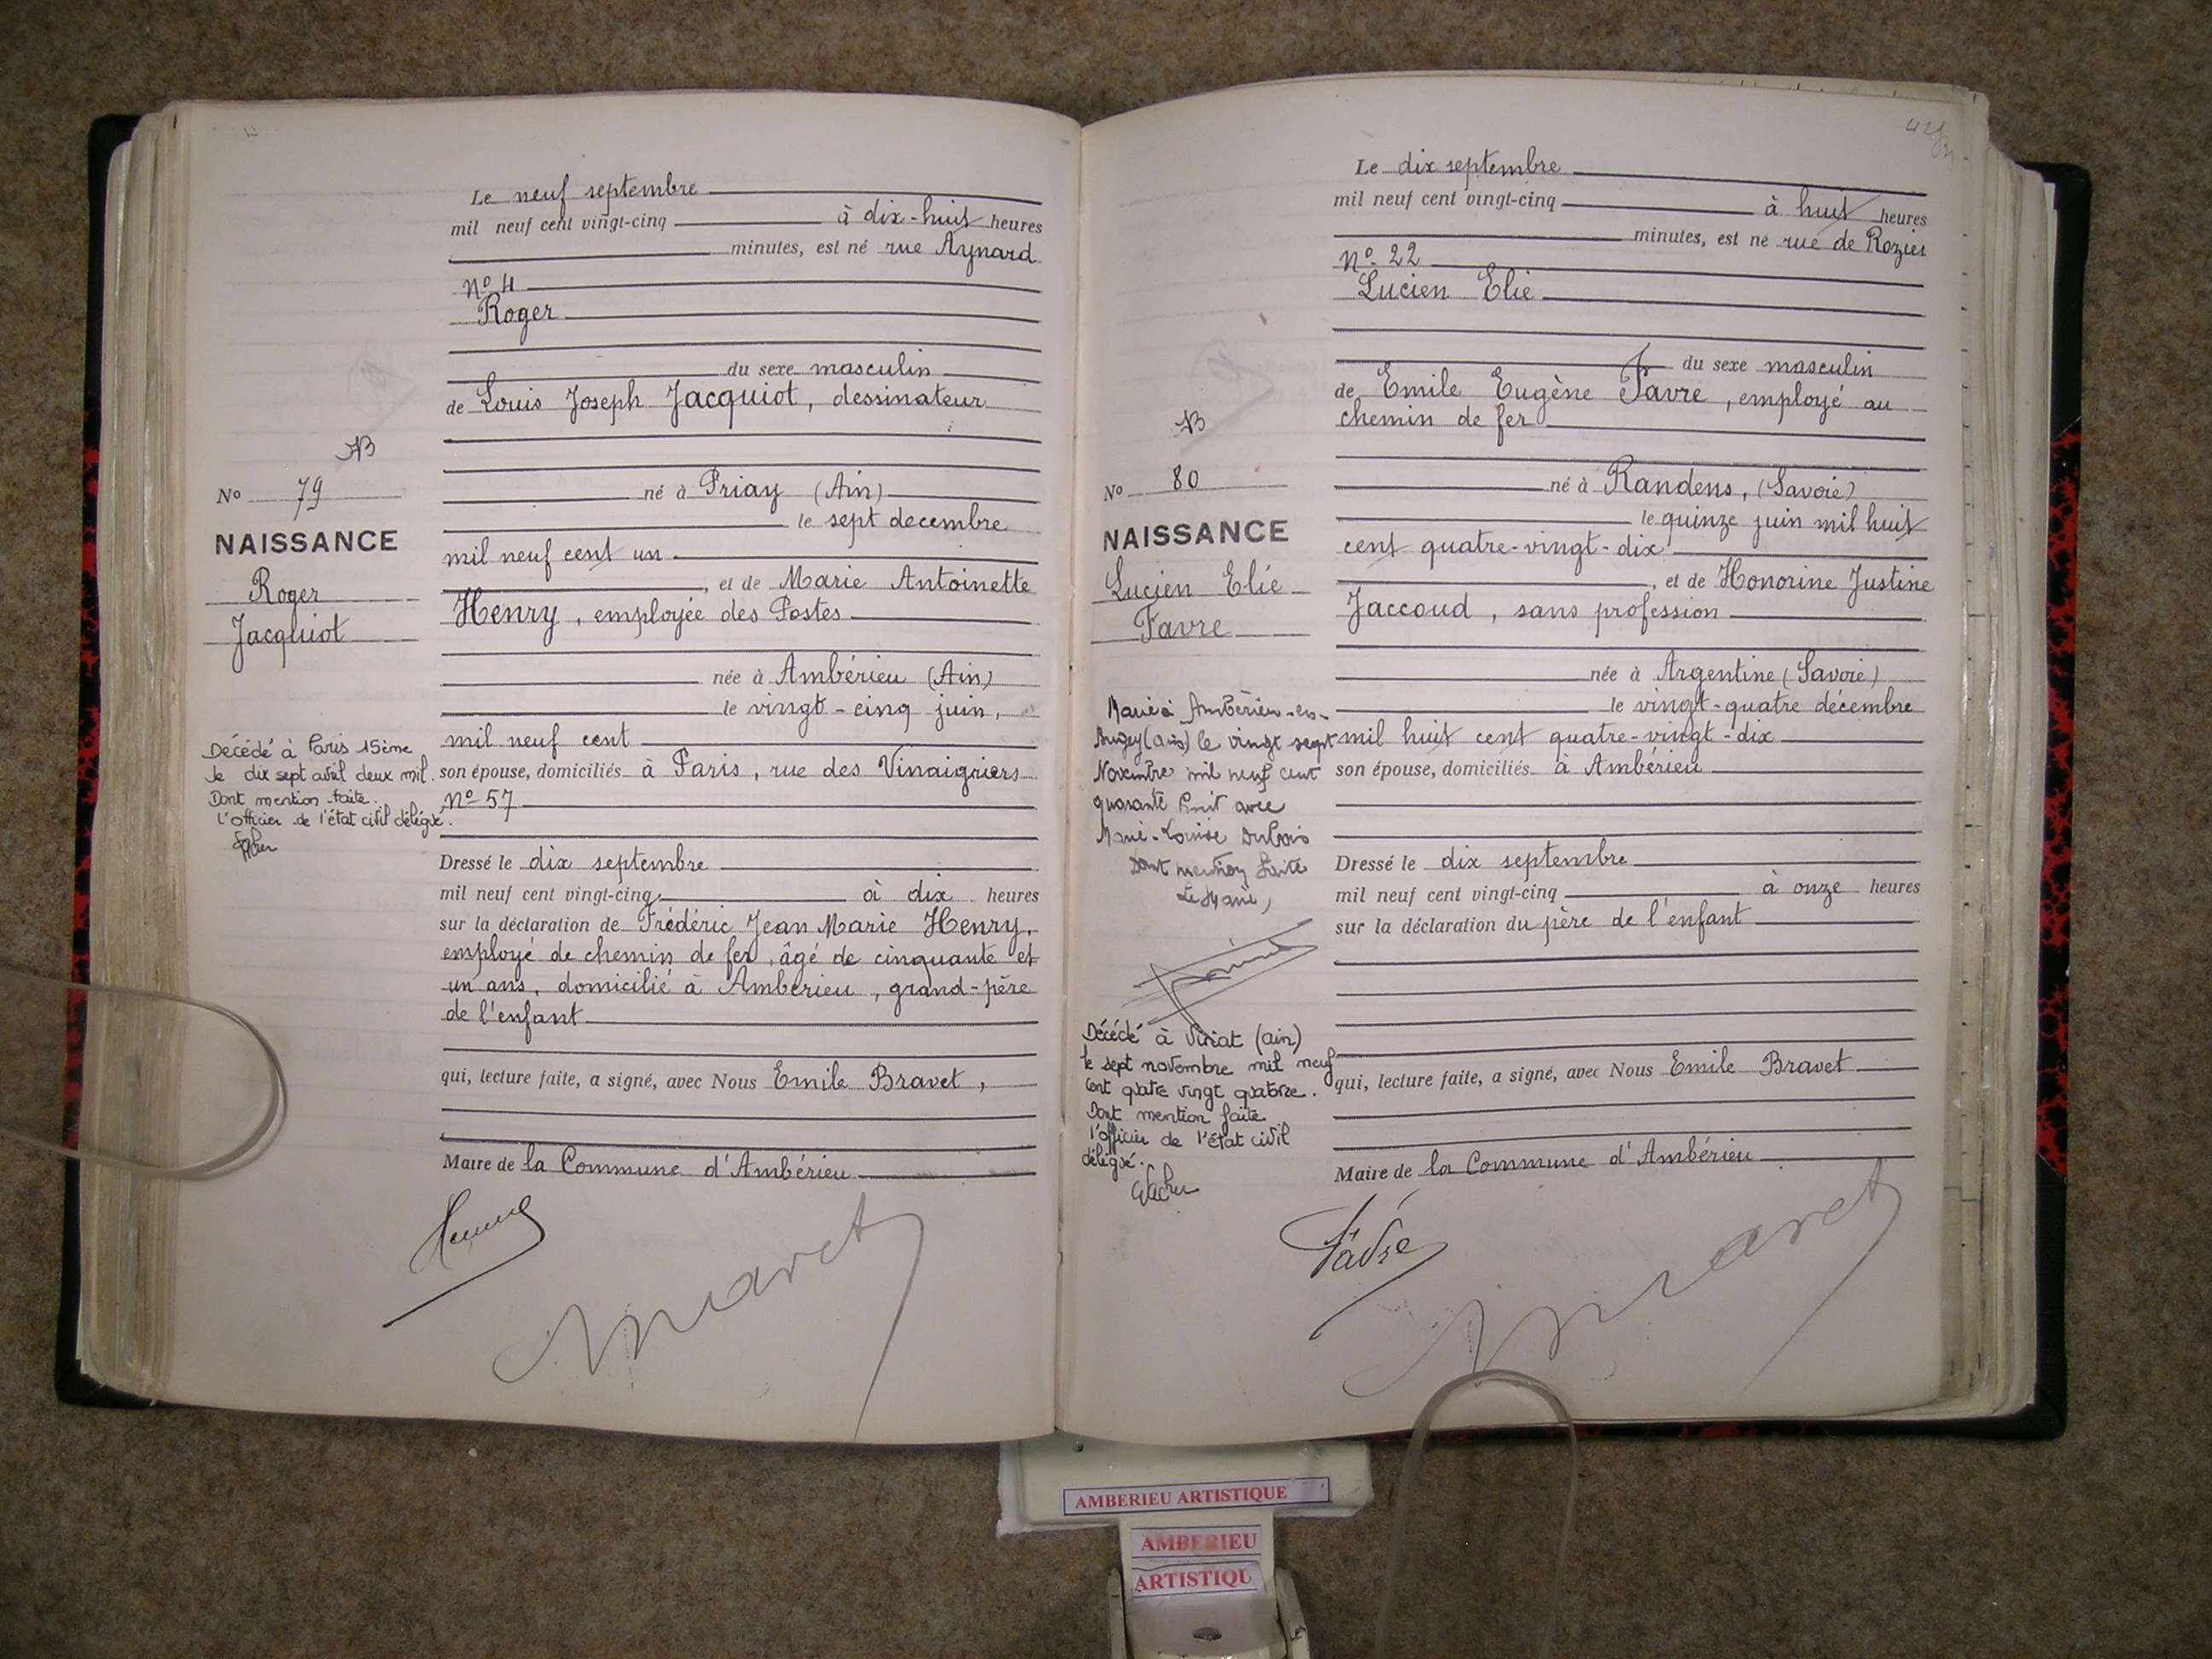 Le neuf septembre
mil neuf cent vingt-cinq à dix-huit heures
minutes, est né rue Aynard
No 4
Roger
du sexe masculin
de Louis Joseph Jacquiot, dessinateur
né à Priay (Ain)
le sept decembre
mil neuf cent un
, et de Marie Antoinette
Henry, employée des Postes
née à Ambérieu (Ain)
le vingt-cinq juin,
mil neuf cent
son épouse, domiciliés à Paris, rue des Vinaigriers
No 57
Dressé le dix septembre
mil neuf cent vingt-cinq à dix heures
sur la déclaration de Frédéric Jean Marie Henry,
employé de chemin de fer, âgé de cinquante et
un ans, domicilié à Ambérieu, grand-père
de l'enfant
qui, lecture faite, a signé, avec Nous Emile Bravet,
Maire de la Commune d'Ambérieu
No 79
NAISSANCE
Roger
Jacquiot
Décédé à Paris 15ème
le dix sept avril deux mil.
Dont mention faite.
l'officier de l'état civil délégué.
Le dix septembre
mil neuf cent vingt-cinq à huit heures
minutes, est né rue de Rozier
No 22
Lucien Elie
du sexe masculin
de Emile Eugène Favre, employé au
chemin de fer
né à Randens, (Savoie)
le quinze juin mil huit
cent quatre-vingt-dix
, et de Honorine Justine
Jaccoud, sans profession
née à Argentine (Savoie)
le vingt-quatre décembre
mil huit cent quatre-vingt-dix
son épouse, domiciliés à Ambérieu
Dressé le dix septembre
mil neuf cent vingt-cinq à onze heures
sur la déclaration du père de l'enfant
qui, lecture faite, a signé, avec Nous Emile Bravet
Maire de la Commune d'Ambérieu
Favre
No 80
NAISSANCE
Lucien Elie
Favre
Marié à Ambérieu-en-
Bugey (ain) le vingt sept
Novembre mil neuf cent
quarante huit avec
Marie-Louise Dubois
Dont mention faite
Le Maire,
Décédé à Viriat (ain)
le sept novembre mil neuf
cent quatre vingt quatorze.
Dont mention faite
l'officier de l'état civil
délégué.
AMBERIEU ARTISTIQUE
AMBERIEU
ARTISTIQU